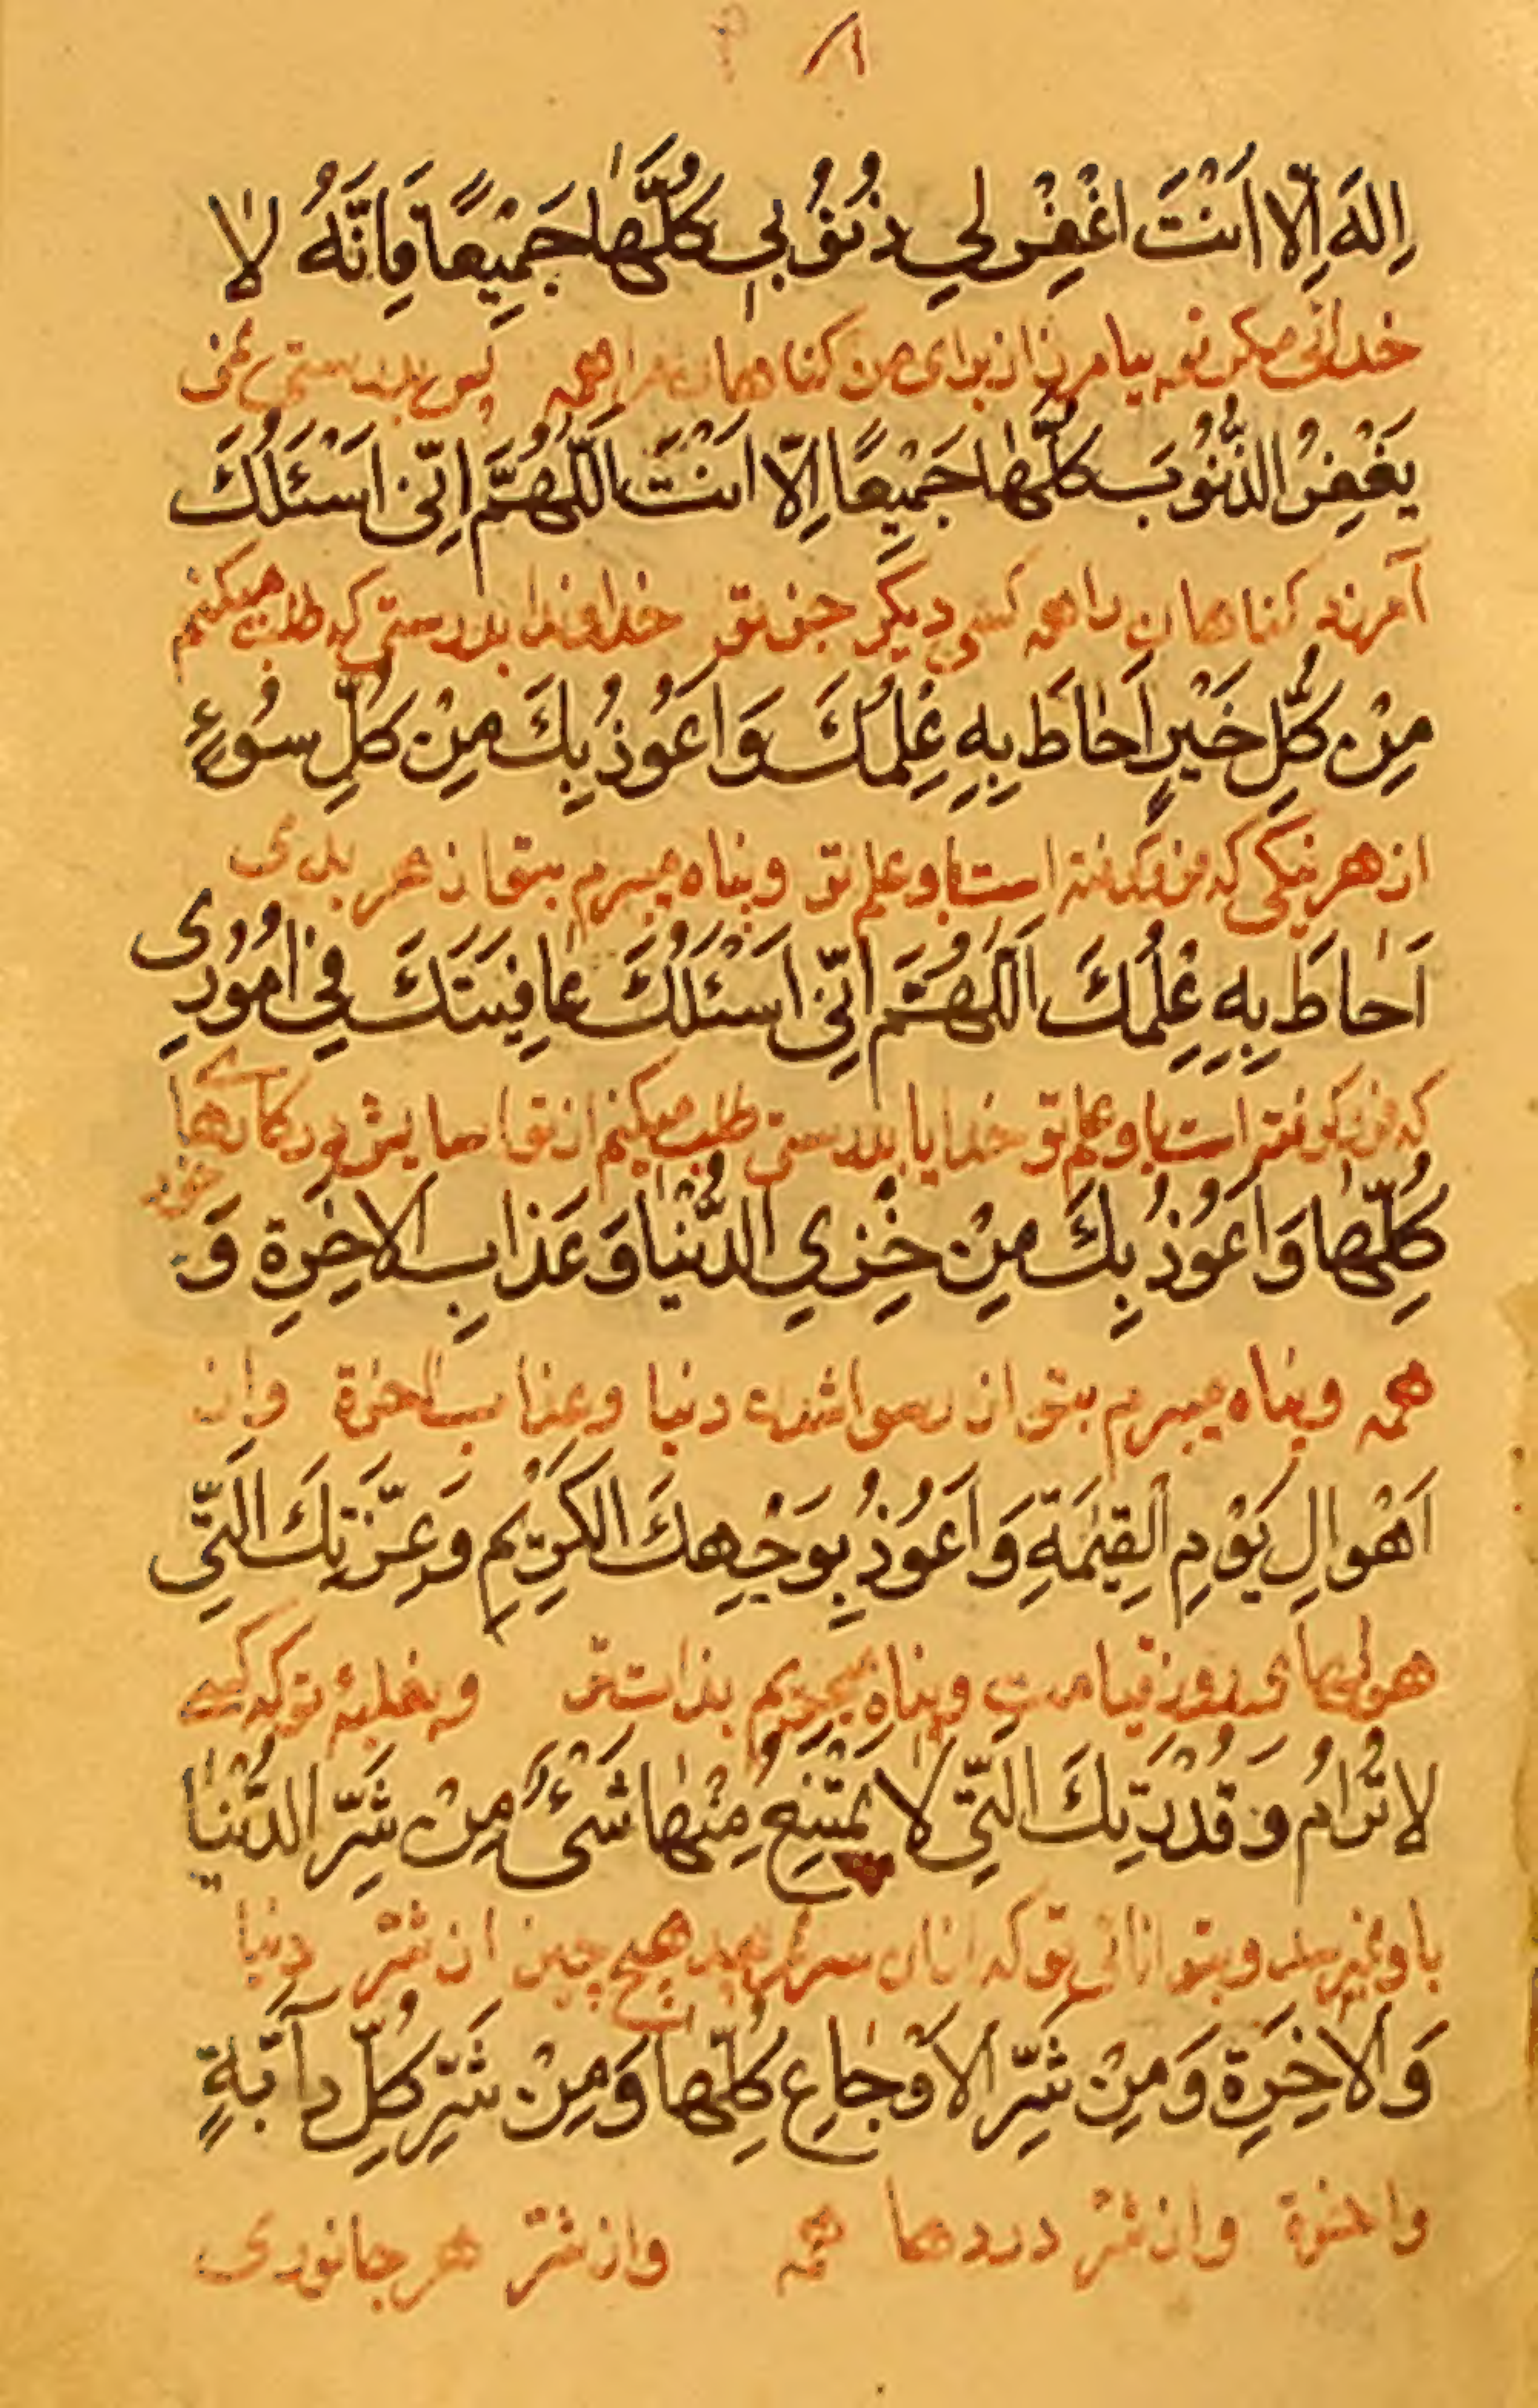 ٨١
اِلهَ اِلّا اَنْتَ اغْفِرْ لِي ذُنُوُبي كُلَّهٰا جَمِيْعًا فَاِنَّهُ لٰا
خدائی مکر تو بیامرز از برای من کناهان مرا همه پس بدرستی
يَغْفِرُ الذُّنُوُبَ كُلَّهٰا جَمِيْعًا اِلّا اَنْتَ اَللّٰهُمَّ اِنّی اَسْئَلُكَ
آمرزد کناهان را همه کسی دیگر جز تو خداوندا بدرستی که طلب میکنم
مِنْ كُلِّ خَيْرٍ اَحٰاطَ بِهِ عِلْمُكَ وَ اَعُوُذُ بِكَ مِنْ كُلِّ سُوُءٍ
از هر نیکی که فرو کرفته است باو علم تو و پناه میبرم بتو از هر بدی
اَحٰاطَ بِهِ عِلْمُكَ اَللّٰهُمَّ اِنّی اَسْئَلُكَ عٰافِيَتَكَ فِي اُمُوُرِی
که فرو کرفته است باو علم تو خدایا بدرستی طلب میکنم از تو اسایش در کارهای
خود
كُلِّهٰا وَ اَعُوُذُ بِكَ مِنْ خِزْيِ الدُّنْيٰا وَ عَذٰابِ الاٰخِرَةِ وَ
همه و پناه میبرم بتو از رسوا شدن دنیا و عذاب اخرة و از
اَهْوالِ يَوْمِ الْقِيٰمَةِ وَ اَعُوُذُ بِوَجْهِكَ الْكَرِيْمِ وَ عِزَّتِكَ الَّتِي
هولهای روز قیامت و پناه میبریم بذات تو و بغلبهٔ تو که کسی
لا تُرٰامُ وَ قُدْرَتِكَ الَّتِي لٰا يَمْتَنِعُ مِنْهٰا شَیْءٌ مِنْ شَرِّ الدُّنْيٰا
باو نمیرسد و بتوانائی تو که از ان هیچ چیز از شر دنیا
وَ الاٰخِرَةِ وَ مِنْ شَرِّ الاَوْجٰاعِ كُلِّهٰا وَ مِنْ شَرِّ كُلِّ دآبَّةٍ
و اخرة و از شر دردها همه و از شر هر جانوری